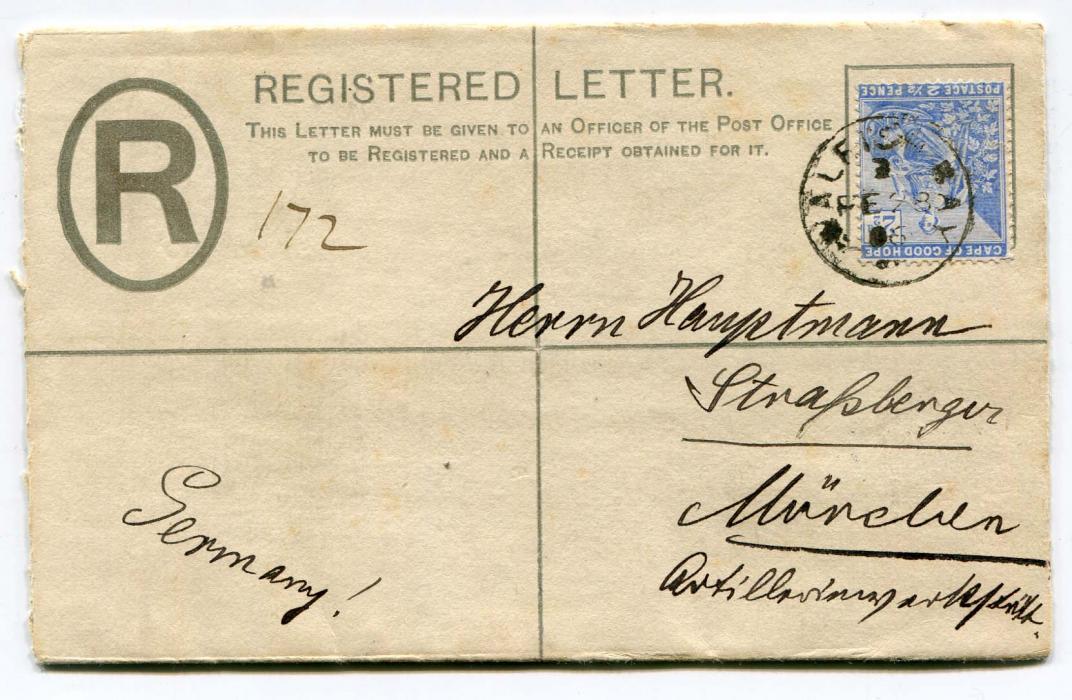 REGISTERED LETTER.
THIS LETTER MUST BE GIVEN TO AN OFFICER OF THE POST OFFICE
TO BE REGISTERED AND A RECEIPT OBTAINED FOR IT.
R
172
POSTAGE 2 ½ PENCE
CAPE OF GOOD HOPE
Herrn Hauptmann
Straßberger
München
Artilleriewerkstätt.
Germany!